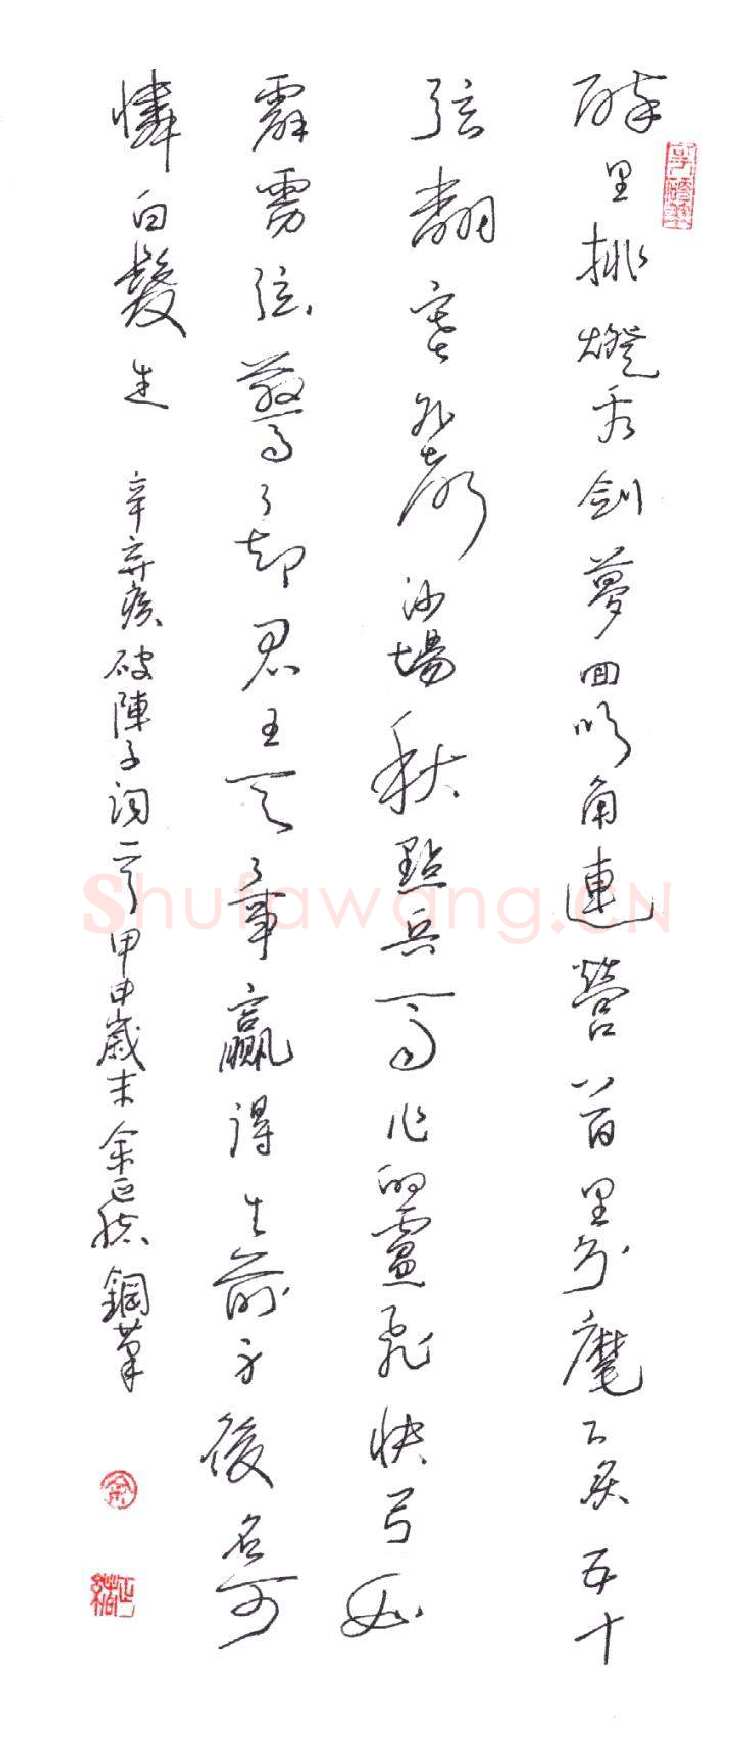 醉里挑燈看劍夢回吹角連營八百里分麾下炙五十
弦翻塞外聲沙場秋點兵馬作的盧飛快弓如
霹雳弦驚了却君王天下事贏得生前身後名可
憐白髮生 辛弃疾破陣子詞一首甲申歲末 鋼筆
Shufawang.CN